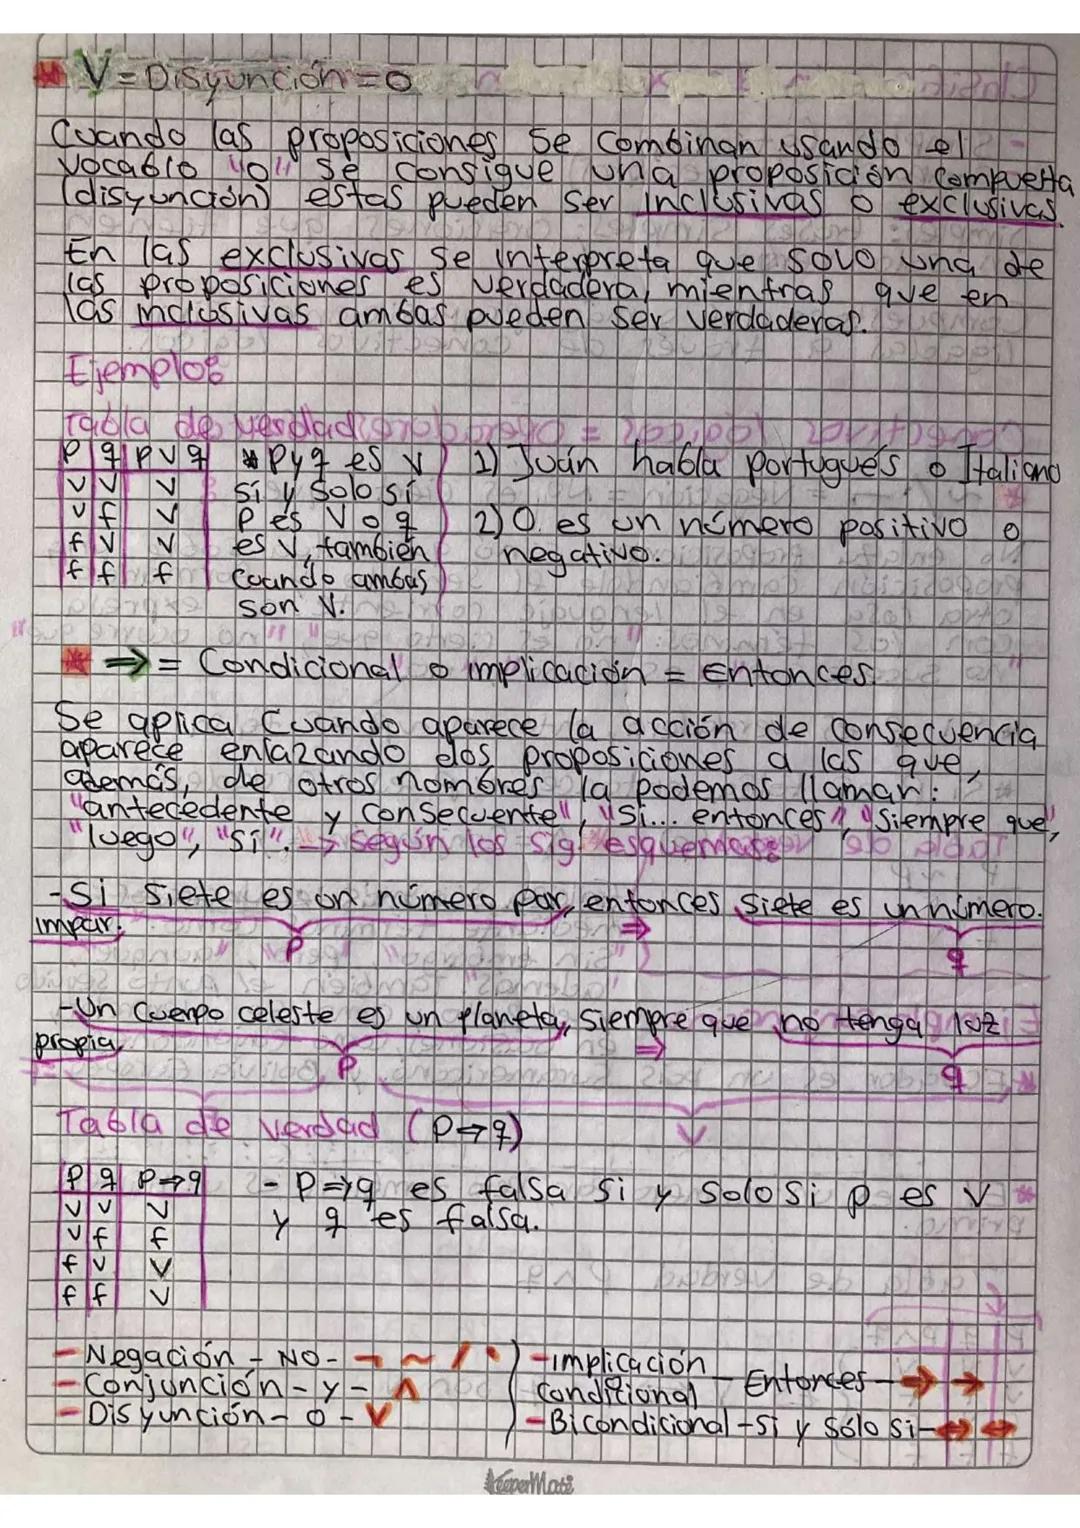 V = Disyunción = o
Cuando las proposiciones se combinan usando el
vocablo "o" se consigue una proposición compuesta
(disyunción) estas pueden ser inclusivas o exclusivas.
En las exclusivas se interpreta que solo una de
las proposiciones es verdadera, mientras que en
las inclusivas ambas pueden ser verdaderas.
Ejemplos
Tabla de verdad
p q p v q
v v v
v f v
f v v
f f f
* p y q es v
si y solo si
p es v o q
es v, también
cuando ambas
son v.
1) Juan habla portugués o Italiano
2) 0 es un número positivo o
negativo.
⇒ = Condicional o implicación = Entonces.
Se aplica cuando aparece la acción de consecuencia
aparece enlazando dos proposiciones a las que,
además, de otros nombres la podemos llamar:
"antecedente y consecuente", "si... entonces", "siempre que",
"luego", "si". → según los sig esquemas:
- Si siete es un número par, entonces siete es un número.
impar.
p ⇒ q
- Un cuerpo celeste es un planeta, siempre que no tenga luz
propia,
p ⇒ q
Tabla de verdad (p→q)
p q p→q
v v v
v f f
f v v
f f v
- p⇒q es falsa si y solo si p es v
y q es falsa.
- Negación - NO - ¬ ~ / •
- Conjunción - y - ∧
- Disyunción - o - v
- implicación
condicional - Entonces - ⇒ →
- Bicondicional - si y sólo si - ⇔ ↔
KeeperMate